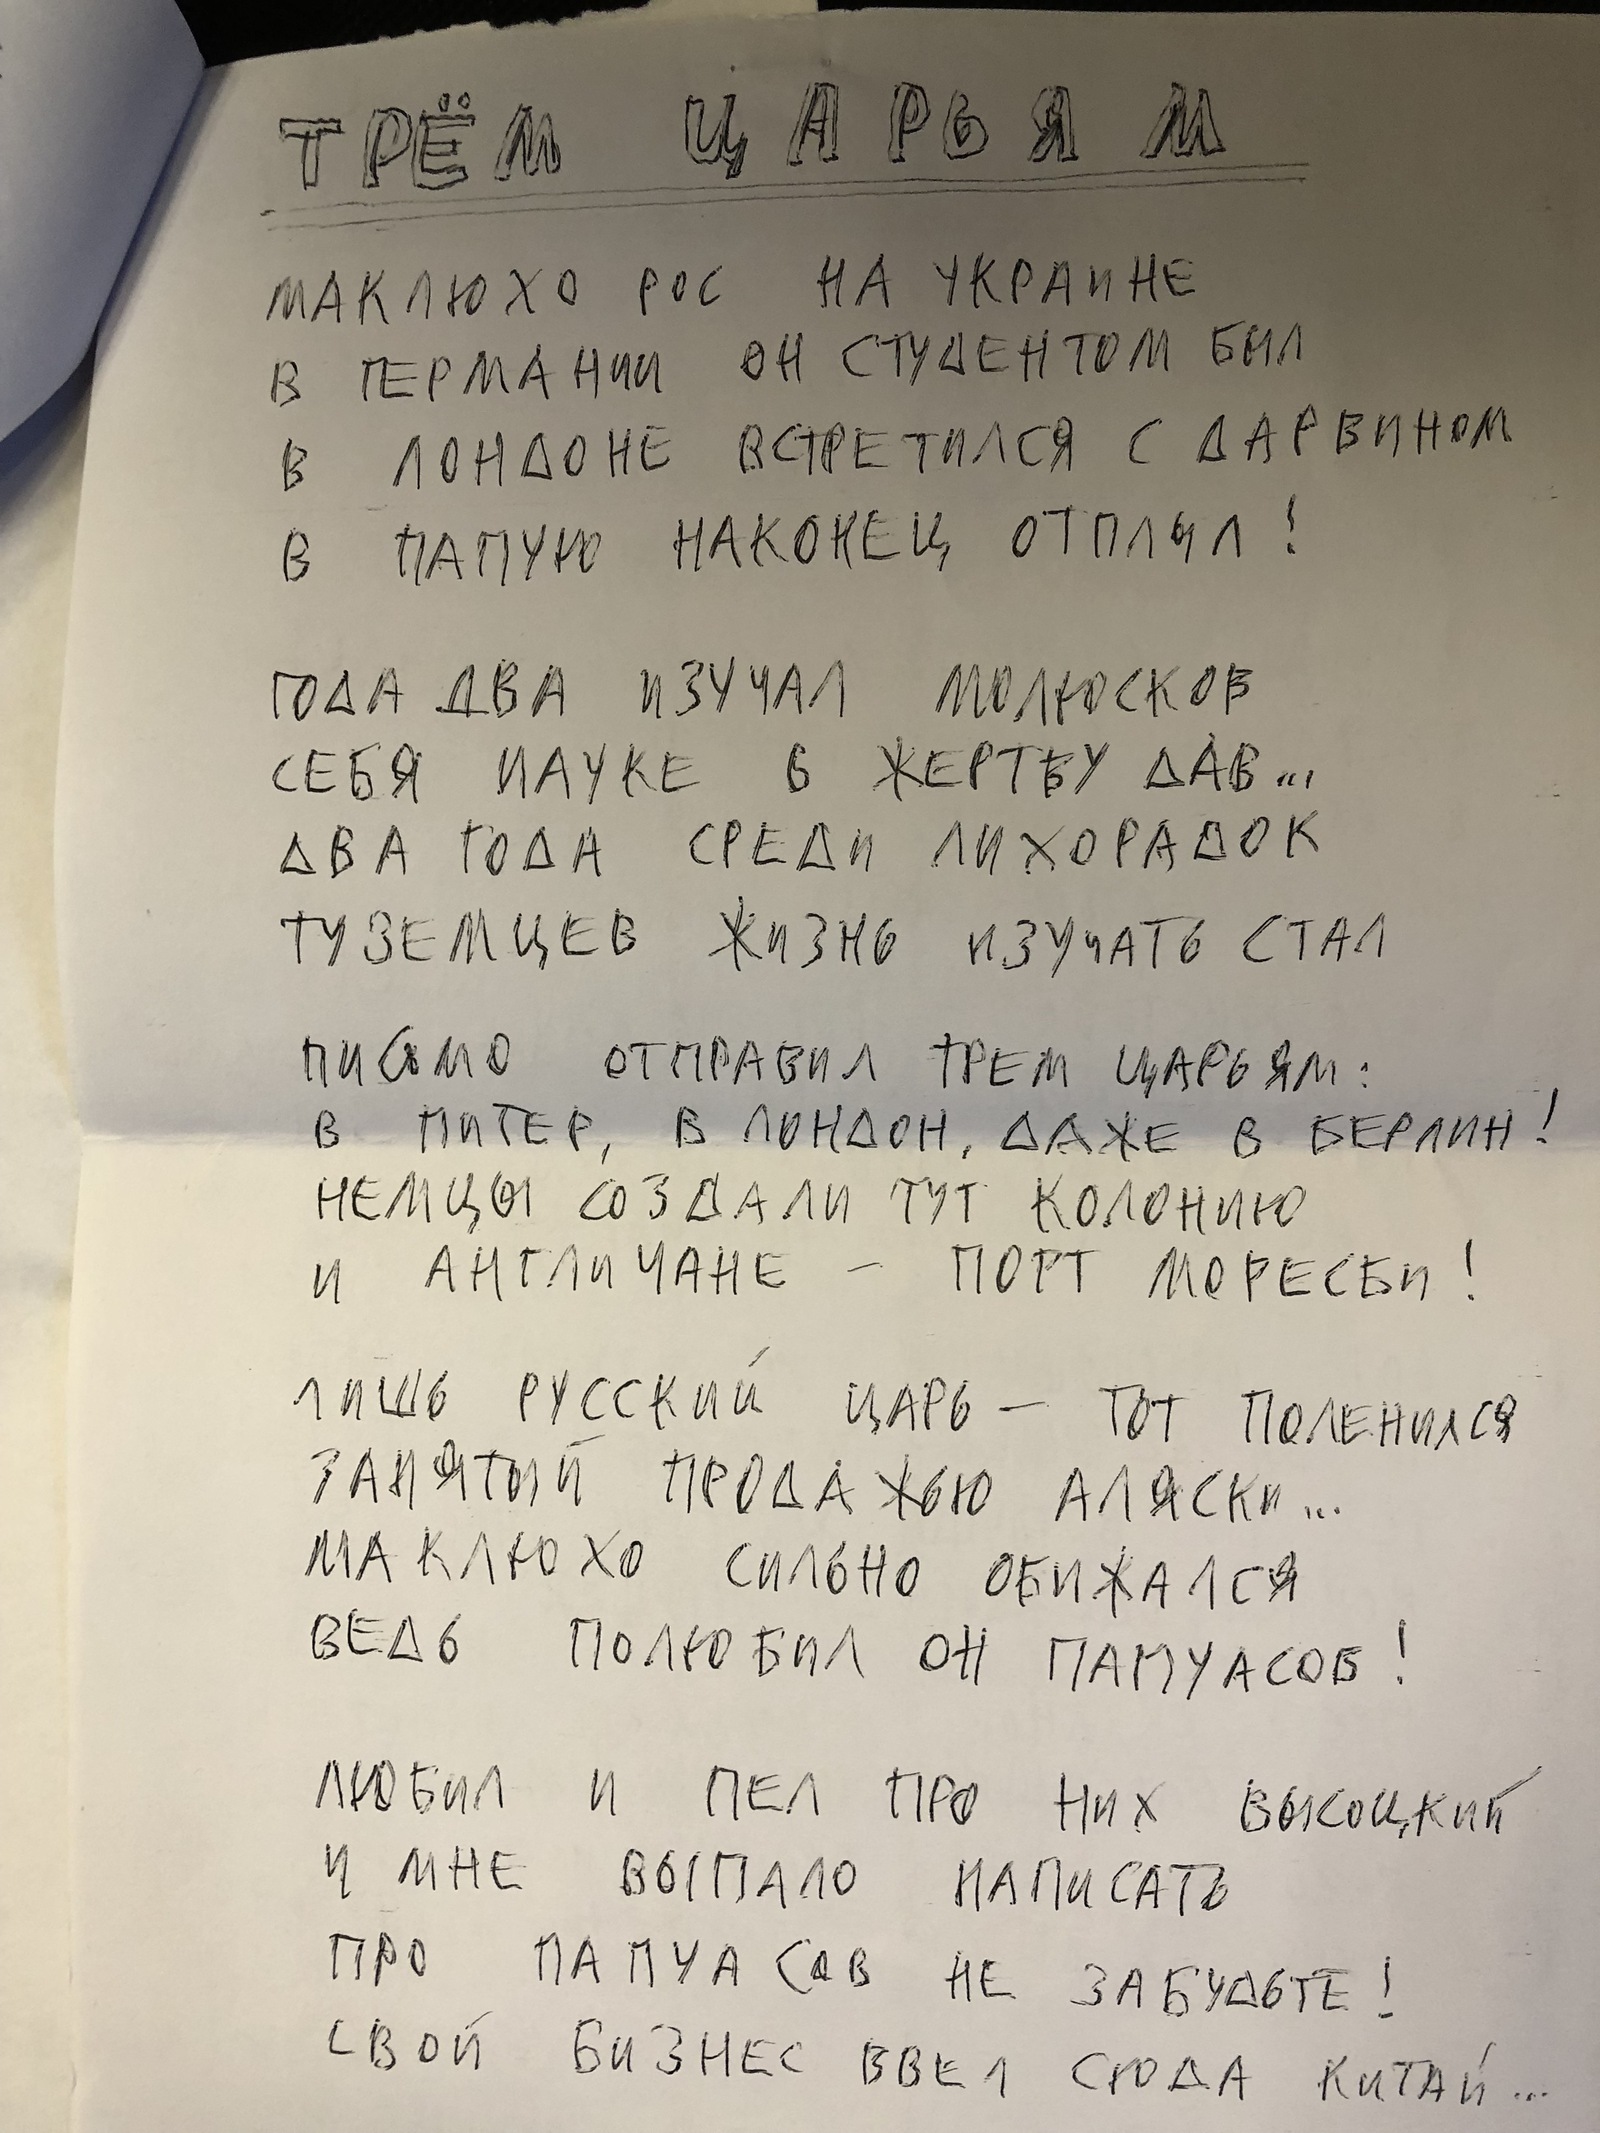 ТРЁМ ЦАРЬЯМ
МАКЛЮХО РОС НА УКРАИНЕ
В ГЕРМАНИИ ОН СТУДЕНТОМ БЫЛ
В ЛОНДОНЕ ВСТРЕТИЛСЯ С ДАРВИНОМ
В ПАПУЮ НАКОНЕЦ ОТПЛЫЛ!
ГОДА ДВА ИЗУЧАЛ МОЛЮСКОВ
СЕБЯ НАУКЕ В ЖЕРТВУ ДАВ...
ДВА ГОДА СРЕДИ ЛИХОРАДОК
ТУЗЕМЦЕВ ЖИЗНЬ ИЗУЧАТЬ СТАЛ
ПИСЬМО ОТПРАВИЛ ТРЕМ ЦАРЬЯМ:
В ПИТЕР, В ЛОНДОН, ДАЖЕ В БЕРЛИН!
НЕМЦЫ СОЗДАЛИ ТУТ КОЛОНИЮ
И АНГЛИЧАНЕ - ПОРТ МОРЕСБИ!
ЛИШЬ РУССКИЙ ЦАРЬ - ТОТ ПОЛЕНИЛСЯ
ЗАНЯТЫЙ ПРОДАЖЬЮ АЛЯСКИ...
МАКЛЮХО СИЛЬНО ОБИЖАЛСЯ
ВЕДЬ ПОЛЮБИЛ ОН ПАПУАСОВ!
ЛЮБИЛ И ПЕЛ ПРО НИХ ВЫСОЦКИЙ
И МНЕ ВЫПАЛО НАПИСАТЬ
ПРО ПАПУАСОВ НЕ ЗАБУДЬТЕ!
СВОЙ БИЗНЕС ВВЕЛ СЮДА КИТАЙ...